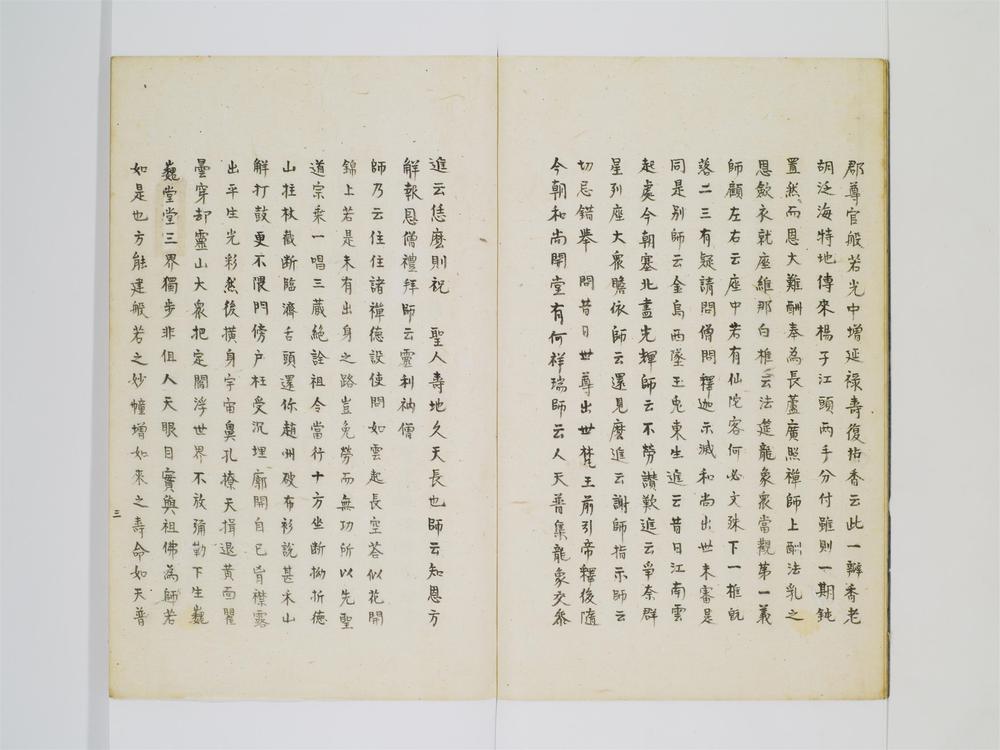 郡尊官般若光中增延祿壽復拈香云此一瓣香老
胡泛海特地傳來楊子江頭兩手分付雖則一期鈍
置然而恩大難酬奉為長蘆廣照禪師上酬法乳之
恩歛衣就座維那白椎云法筵龍象衆當觀第一義
師顧左右云座中若有仙陀客何必文殊下一椎旣
落二三有疑請問僧問釋迦示滅和尚出世未審是
同是別師云金烏西墜玉兔東生進云昔日江南雲
起處今朝塞北晝光輝師云不勞讃歎進云爭奈群
星列座大衆瞻依師云還見麼進云謝師指示師云
切忌錯擧 問昔日世尊出世梵王前引帝釋後隨
今朝和尚開堂有何祥瑞師云人天普集龍象交參
進云恁麼則祝 聖人壽地久天長也師云知恩方
解報恩僧禮拜師云靈利衲僧
師乃云住住諸禪德設使問如雲起長空荅似花開
錦上若是未有出身之路豈免勞而無功所以先聖
道宗乘一唱三藏絕詮祖令當行十方坐斷拗折德
山拄杖截斷臨濟舌頭還你趙州破布衫說甚禾山
解打鼓更不隈門傍户枉受沉埋廓開自己胷襟露
出平生光彩然後橫身宇宙鼻孔撩天揖退黃面瞿
曇穿却靈山大衆把定閻浮世界不放彌勒下生巍
巍堂堂三界獨步非但人天眼目實與祖佛為師若
如是也方能建般若之妙幢增如來之壽命如天普
三